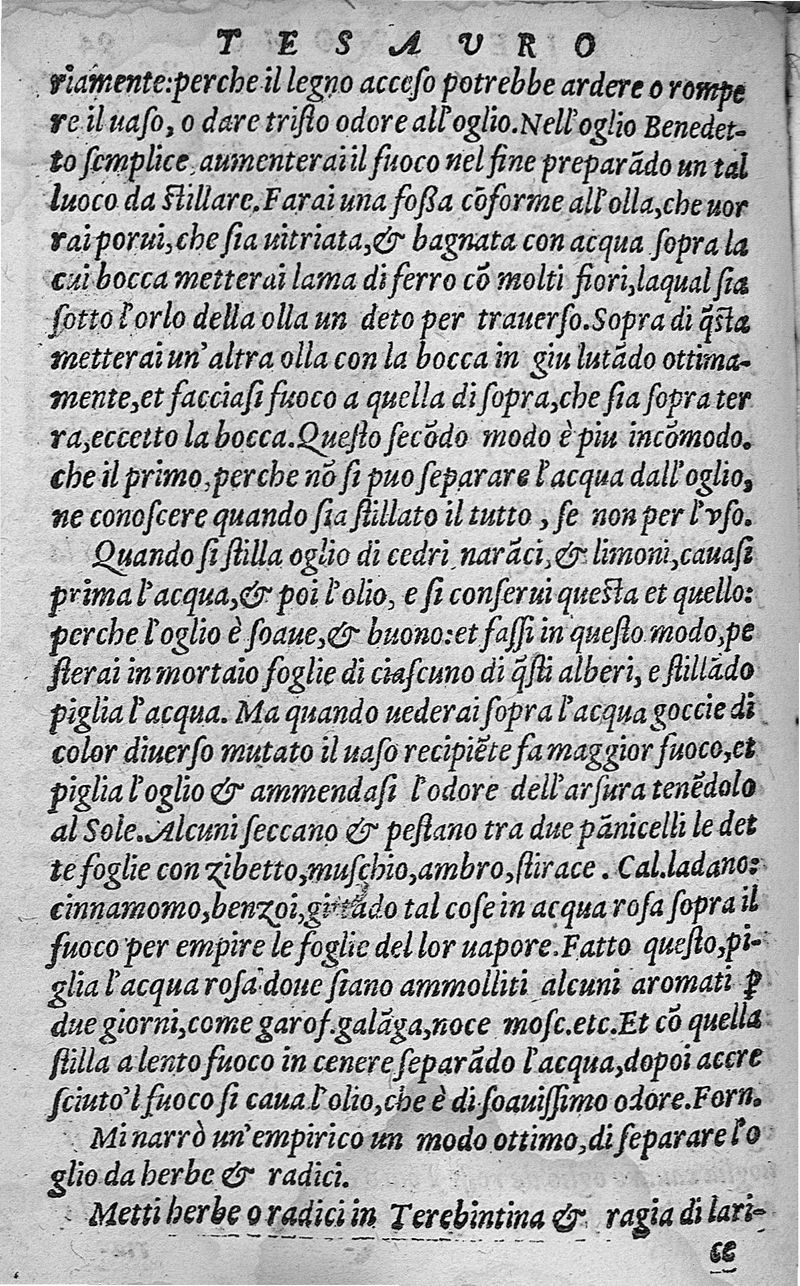 TESAVRO
riamente:perche il legno acceſo potrebbe ardere o rompe
re il uaſo, o dare triſto odore all'oglio.Nell'oglio Benedet-
to ſemplice aumenterai il fuoco nel fine preparãdo un tal
luoco da ſtillare.Farai una foſſa cõforme all'olla,che uor
rai porui,che ſia uitriata,& bagnata con acqua ſopra la
cui bocca metterai lama di ferro cõ molti fiori,laqual ſia
ſotto l'orlo della olla un deto per trauerſo.Sopra di q̃ſta
metterai un'altra olla con la bocca in giu lutãdo ottima-
mente,et facciaſi fuoco a quella di ſopra,che ſia ſopra ter
ra,eccetto la bocca.Queſto ſecõdo modo è piu incõmodo.
che il primo,perche nõ ſi puo ſeparare l'acqua dall'oglio,
ne conoſcere quando ſia ſtillato il tutto, ſe non per l'vſo.
Quando ſi ſtilla oglio di cedri narãci,& limoni,cauaſi
prima l'acqua,& poi l'olio, e ſi conſerui queſta et quello:
perche l'oglio è ſoaue,& buono:et faſſi in queſto modo,pe
ſterai in mortaio foglie di ciaſcuno di q̃ſti alberi, e ſtillãdo
piglia l'acqua. Ma quando uederai ſopra l'acqua goccie di
color diuerſo mutato il uaſo recipiẽte fa maggior fuoco,et
piglia l'oglio & ammendaſi l'odore dell'arſura tenẽdolo
al Sole.Alcuni ſeccano & peſtano tra due pãnicelli le det
te foglie con zibetto,muſchio,ambro,ſtirace. Cal.ladano:
cinnamomo,benzoi,gittãdo tal coſe in acqua roſa ſopra il
fuoco per empire le foglie del lor uapore.Fatto queſto,pi-
glia l'acqua roſa doue ſiano ammolliti alcuni aromati ꝑ
due giorni,come garof.galãga,noce moſc.etc.Et cõ quella
ſtilla a lento fuoco in cenere ſeparãdo l'acqua,dopoi accre
ſciuto'l fuoco ſi caua l'olio,che è di ſoauiſſimo odore.Forn.
Mi narrò un'empirico un modo ottimo,di ſeparare l'o
glio da herbe & radici.
Metti herbe o radici in Terebintina & ragia di lari-
ce